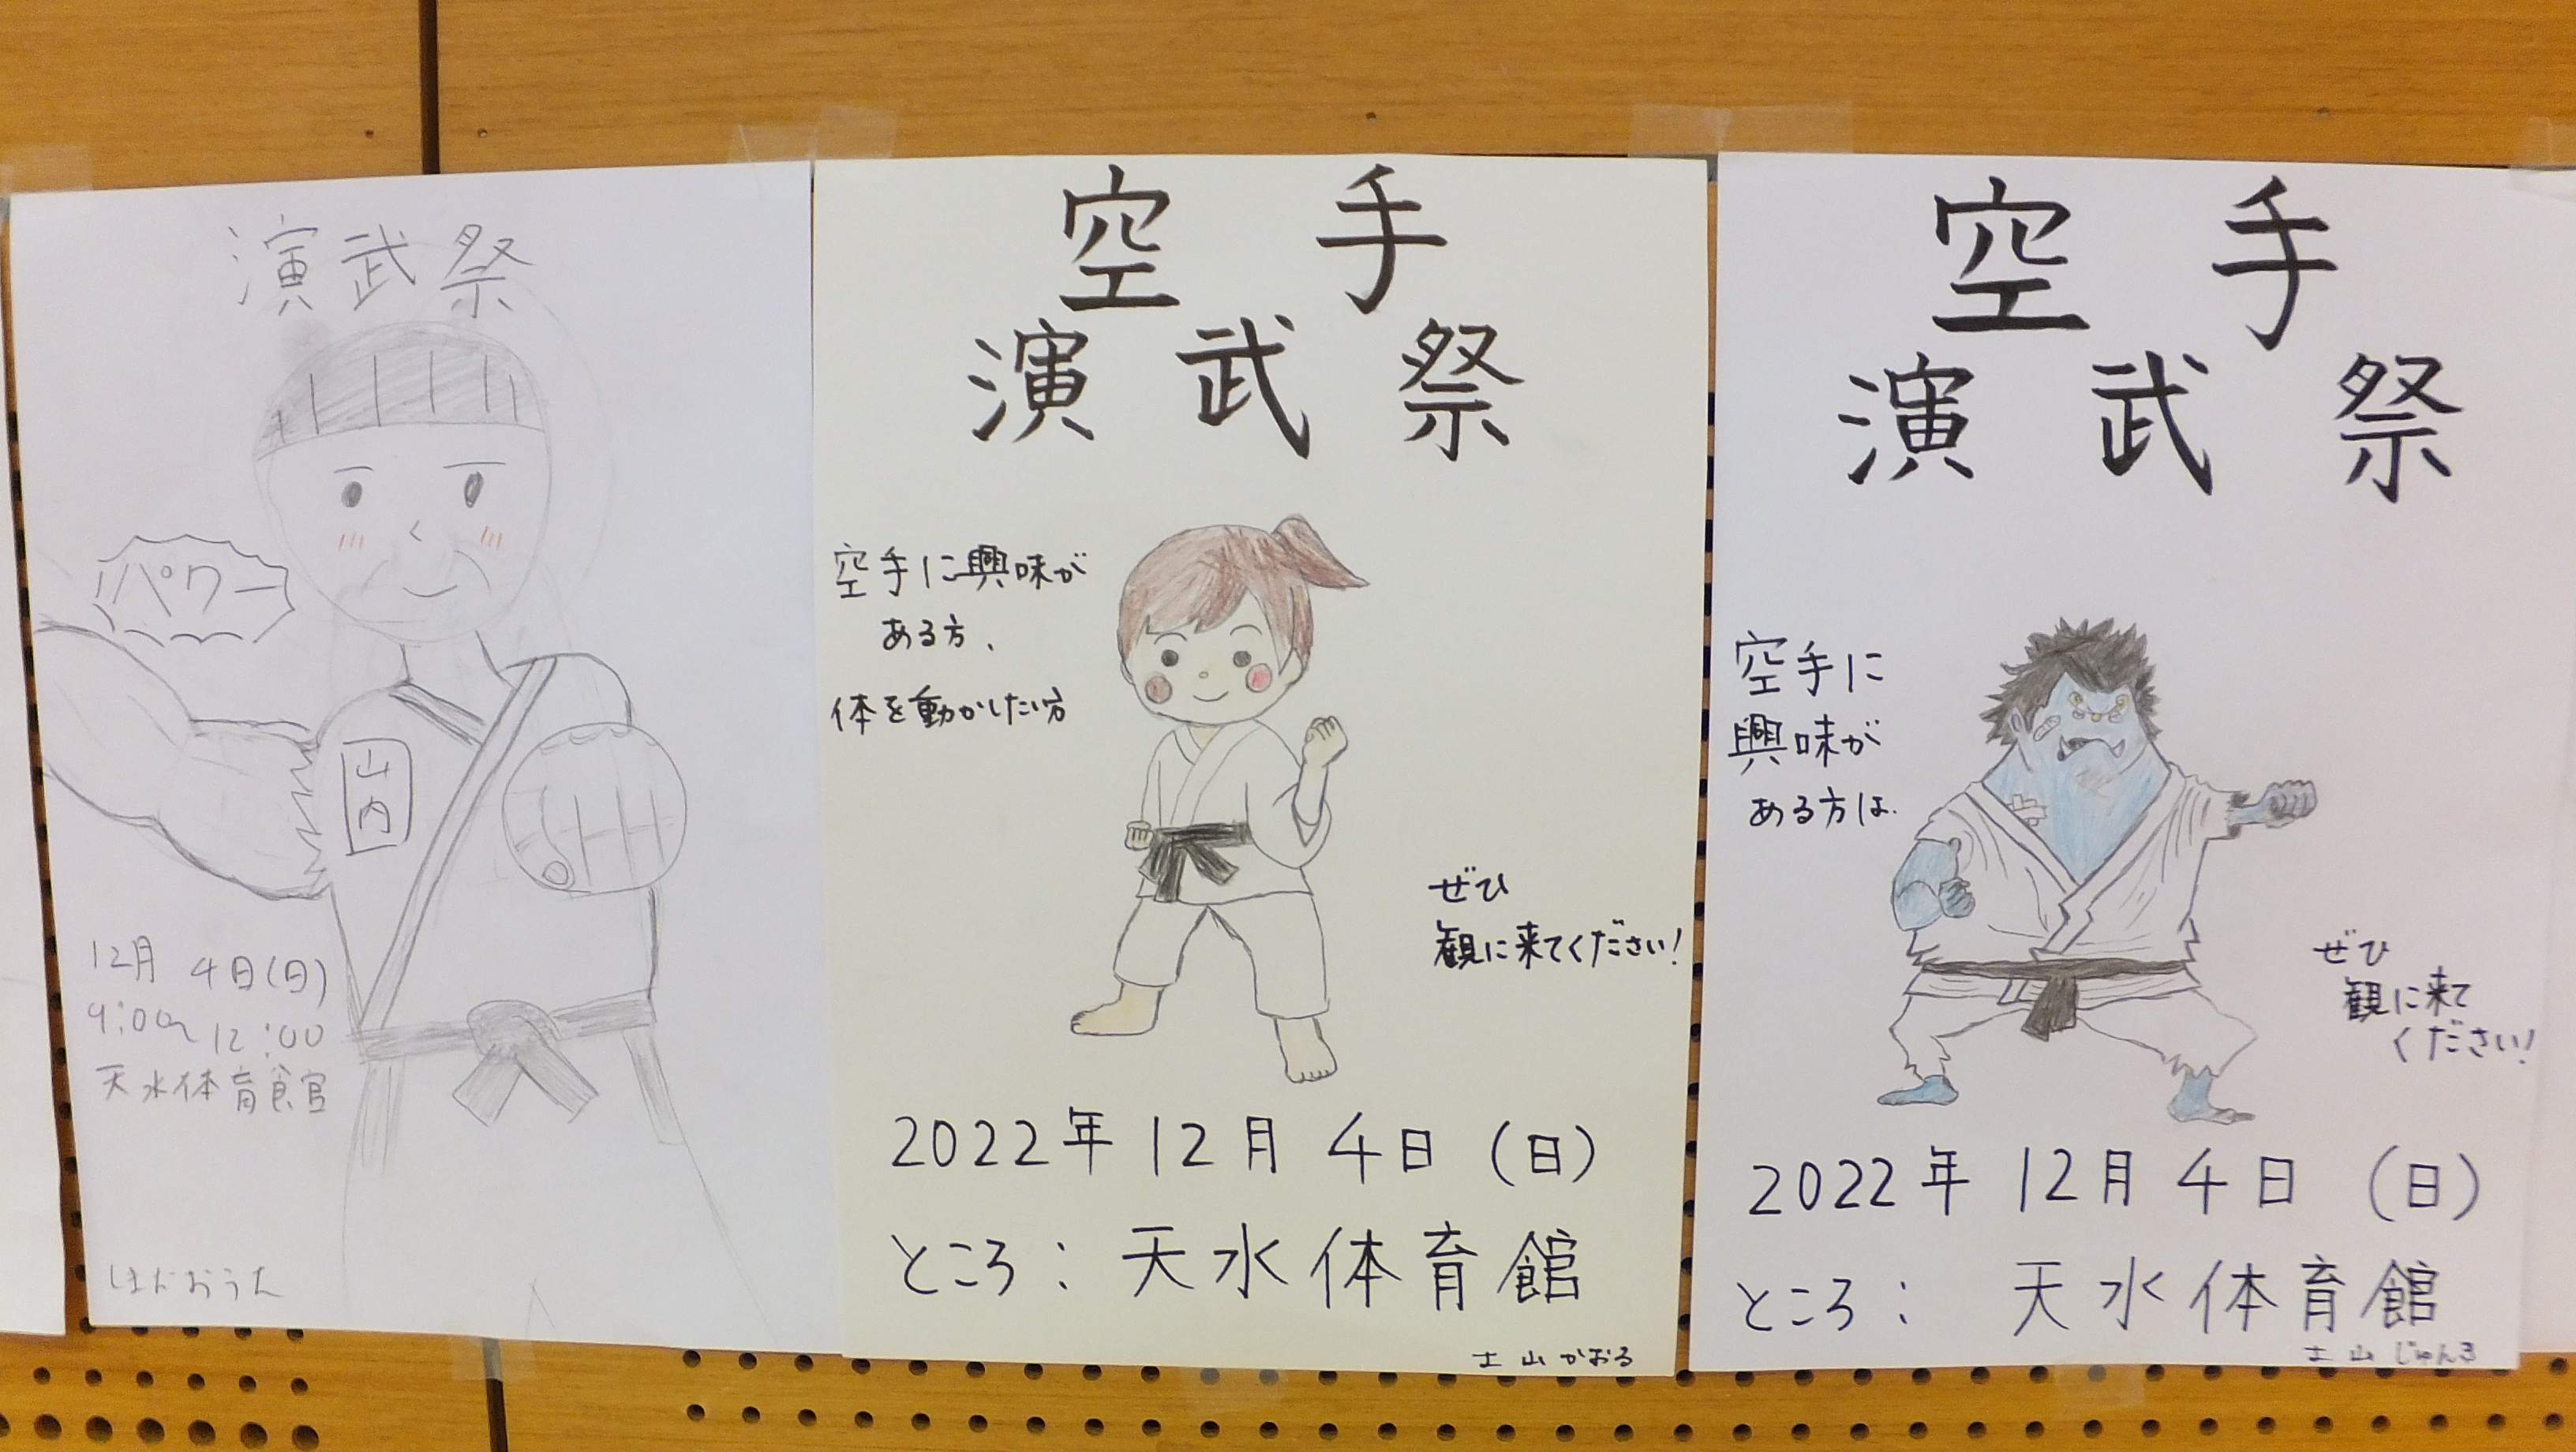 演武祭
パワー
山内
12月 4日(日)
9:00〜12:00
天水体育館
空手
演武祭
空手に興味が
ある方、
体を動かしたい方
ぜひ
観に来てください!
2022年 12月 4日 (日)
ところ: 天水体育館
土山 かおる
空手
演武祭
空手に
興味が
ある方は、
ぜひ
観に来て
ください!
2022年 12月 4日 (日)
ところ: 天水体育館
土山 じゅんき